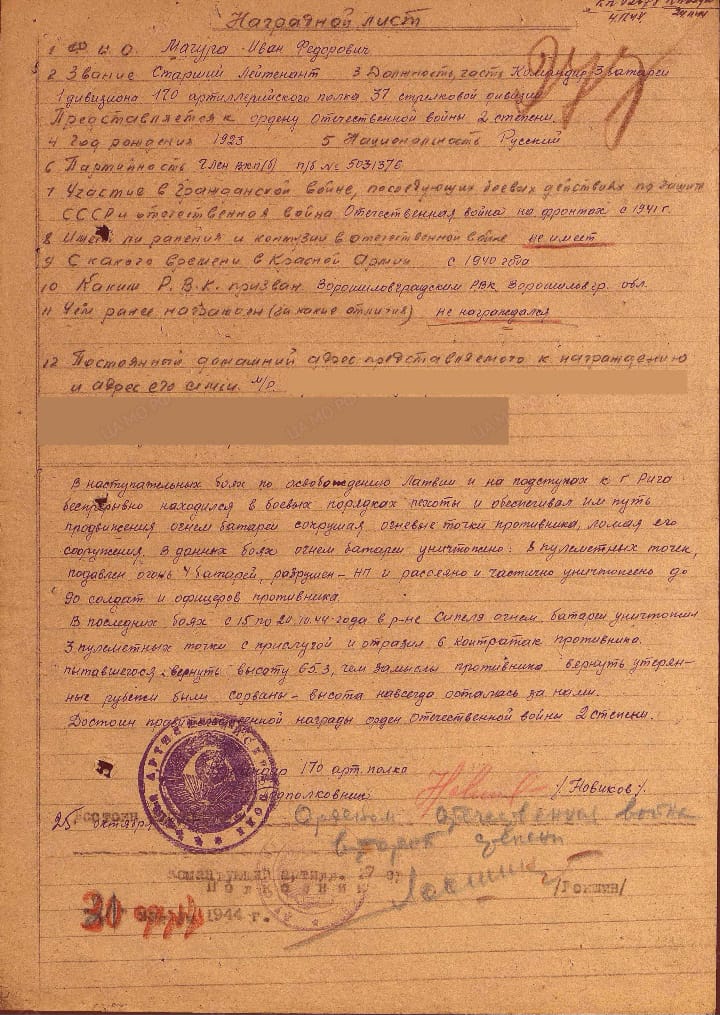 Наградной лист
1 Ф. И. О. Мачуга Иван Федорович
2 Звание Старший Лейтенант 3 Должность, часть Командир 3 батареи
1 дивизиона 170 артиллерийского полка 37 стрелковой дивизии
Представляется к ордену Отечественной войны 2 степени.
4 Год рождения 1923 5 Национальность Русский
6 Партийность член ВКП(б) п/б № 5031376
7 Участие в Гражданской войне, последующих боевых действиях по защите
СССР и отечественная война Отечественная война на фронтах с 1941 г.
8 Имеет ли ранения и контузии в отечественной войне не имеет
9 С какого времени в Красной Армии с 1940 года
10 Каким Р.В.К. призван Ворошиловградским РВК, Ворошиловгр. обл.
11 Чем ранее награжден (за какие отличия) не награждался
12 Постоянный домашний адрес представляемого к награждению
и адрес его семьи.
В наступательных боях по освобождению Латвии и на подступах к г. Рига
беспрерывно находился в боевых порядках пехоты и обеспечивал им путь
продвижения огнем батареи сокрушая огневые точки противника, ломая его
сооружения. В данных боях огнем батареи уничтожено: 8 пулеметных точек,
подавлен огонь 4 батарей, разрушен - НП и рассеяно и частично уничтожено до
90 солдат и офицеров противника.
В последних боях с 15 по 20.10.44 года в р-не Сипеля огнем батареи уничтожил
3 пулеметных точки с прислугой и отразил 6 контратак противника.
пытавшегося вернуть высоту 65.3, чем замыслы противника вернуть утерян-
ные рубежи были сорваны - высота навсегда осталась за нами.
Достоин правительственной награды орден Отечественной войны 2 степени.
Командир 170 арт. полка
подполковник /Новиков/.
25 октября
Достоин Орденом Отечественная война
второй степени
Командующий артил. 37 сд
Полковник /Локшин/
30 1944 г.